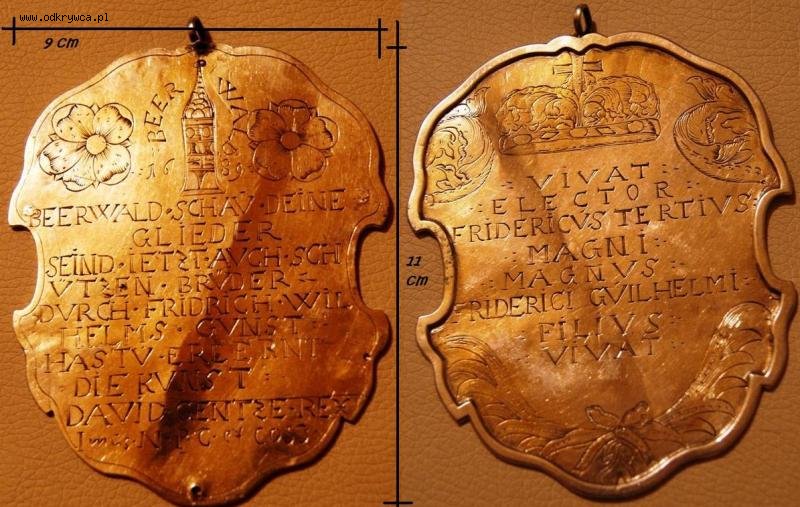 www.odkrywca.pl
9 cm
BEER WALD
1689
BEERWALD · SCHAV · DEINE
GLIEDER
SEIND · IETST · AUCH · SCH
VTSEN · BRUDER
DURCH · FRIDRICH · WIL
HELMS · GUNST
HASTV · ERLERNT
DIE KUNST
DAVID · GENTSE · REX
11 cm
VIVAT
ELECTOR
FRIDERICVS TERTIVS
MAGNI
MAGNVS
FRIDERICI GVILHELMI
FILIVS
VIVAT